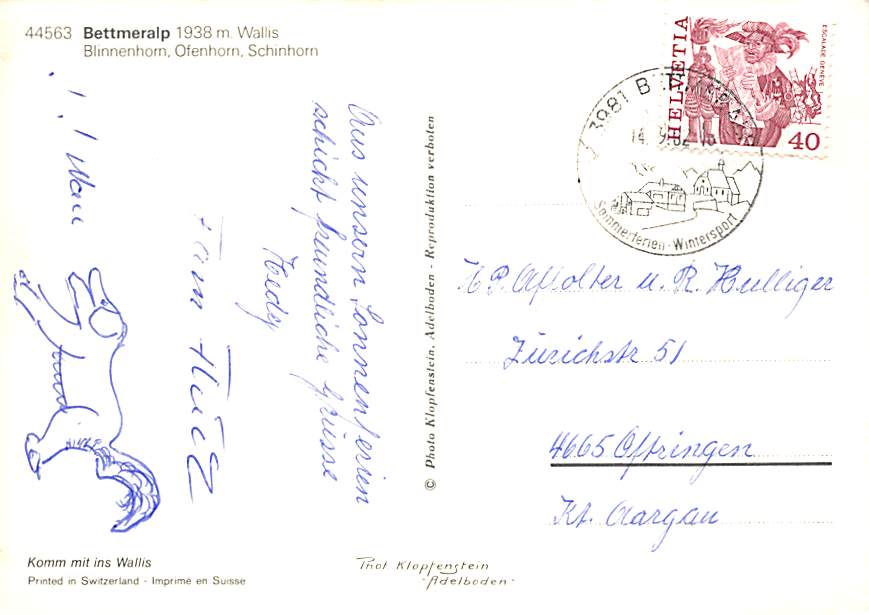 44563 Bettmeralp 1938 m. Wallis
Blinnenhorn, Ofenhorn, Schinhorn
HELVETIA
ESCALADE GENÈVE
40
3981 BETTMERALP
14. 9.82
Sommerferien - Wintersport
Aus unsern Sonnenferien
schickt freundliche Grüsse
Hedy
© Photo Klopfenstein, Adelboden - Reproduktion verboten
H P. Affolter u. R. Hulliger
Zürichstr 51
4665 Oftringen
Kt. Aargau
Komm mit ins Wallis
Printed in Switzerland - Imprimé en Suisse
Phot Klopfenstein
-Adelboden-